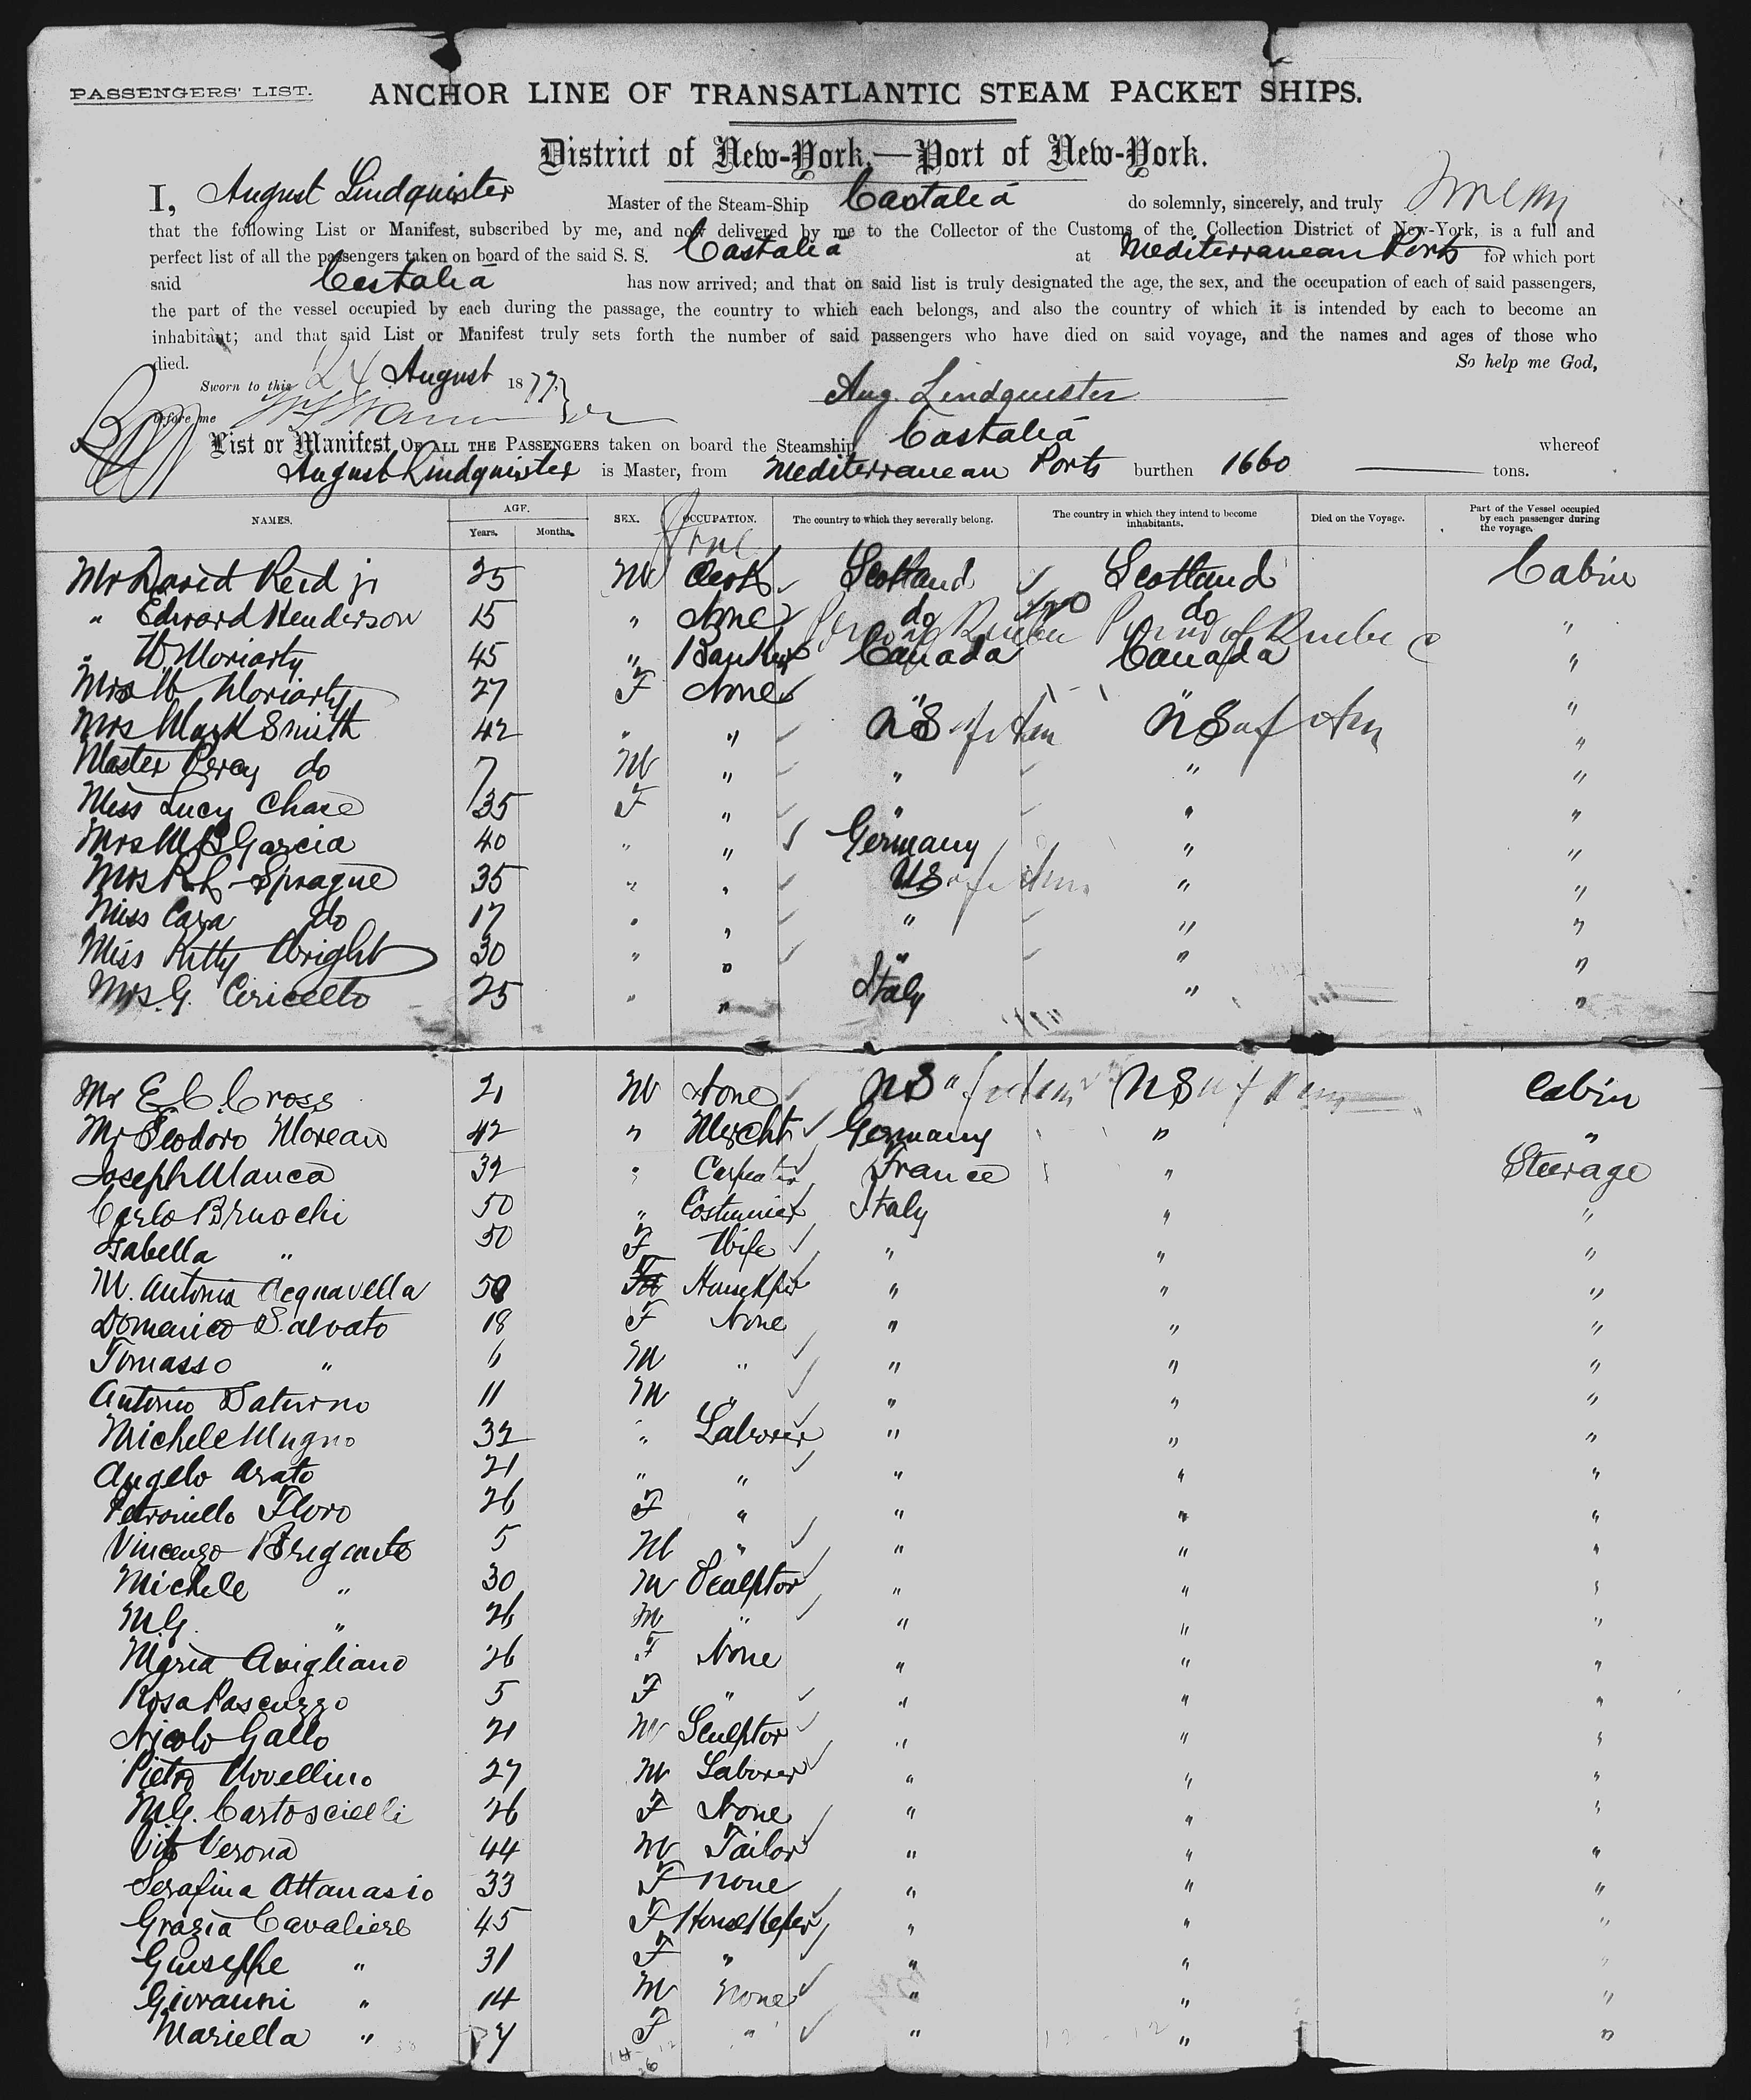 PASSENGERS' LIST.
ANCHOR LINE OF TRANSATLANTIC STEAM PACKET SHIPS.
District of New-York,—Port of New-York.
I, August Lindquister Master of the Steam-Ship Castalia do solemnly, sincerely, and truly
that the following List or Manifest, subscribed by me, and now delivered by me to the Collector of the Customs of the Collection District of New-York, is a full and
perfect list of all the passengers taken on board of the said S. S. Castalia at Mediterranean Ports for which port
said Castalia has now arrived; and that on said list is truly designated the age, the sex, and the occupation of each of said passengers,
the part of the vessel occupied by each during the passage, the country to which each belongs, and also the country of which it is intended by each to become an
inhabitant; and that said List or Manifest truly sets forth the number of said passengers who have died on said voyage, and the names and ages of those who
died. So help me God,
Sworn to this 24 August 1877,
before me Aug. Lindquister
List or Manifest OF ALL THE PASSENGERS taken on board the Steamship Castalia whereof
August Lindquister is Master, from Mediterranean Ports burthen 1660 tons.
NAMES. AGE. Years. Months. SEX. OCCUPATION. The country to which they severally belong. The country in which they intend to become inhabitants. Died on the Voyage. Part of the Vessel occupied by each passenger during the voyage.
Mr David Reid jr 25 M Scotland Scotland Cabin
" Edward Henderson 15 " None do do "
" W. Moriarty 45 " Banker Canada Canada "
Mrs W Moriarty 27 F None " " "
Mrs Mark Smith 42 " " US of Am US of Am "
Master Percy do 7 M " " " "
Miss Lucy Chase 35 F " " " "
Mrs M B Garcia 40 " " Germany " "
Mrs R. L. Sprague 35 " " US of Am. " "
Miss Cara do 17 " " " " "
Miss Kitty Wright 30 " " " " "
Mrs. G. Ciricello 25 " " Italy " "
Mr E. C. Cross 21 M None US of Am US of Am Cabin
Mr Teodoro Moreau 42 " Mercht Germany " "
Joseph Manca 32 " Carpenter France " Steerage
Carlo Bruochi 50 " Costumier Italy " "
Isabella " 50 F Wife " " "
M. Antonia Acquavella 50 F Housekpr " " "
Domenico Salvato 18 F None " " "
Tomasso " 6 M " " " "
Antonio Saturno 11 M " " " "
Michele Mugno 32 " Laborer " " "
Angelo Arato 21 " " " " "
Petronillo Floro 26 F " " " "
Vincenzo Brigante 5 M " " " "
Michele " 30 M Sculptor " " "
M.G. " 26 M " " " "
Maria Avigliano 26 F None " " "
Rosa Pascuzzo 5 F " " " "
Nicolo Gallo 21 M Sculptor " " "
Pietro Novellino 27 M Laborer " " "
M.G. Cartoscielli 26 F None " " "
Vito Verona 44 M Tailor " " "
Serafina Attanasio 33 F None " " "
Grazia Cavaliere 45 F HouseKeper " " "
Giuseppe " 31 F " " " "
Giovanni " 14 M None " " "
Mariella " 7 F " " " "